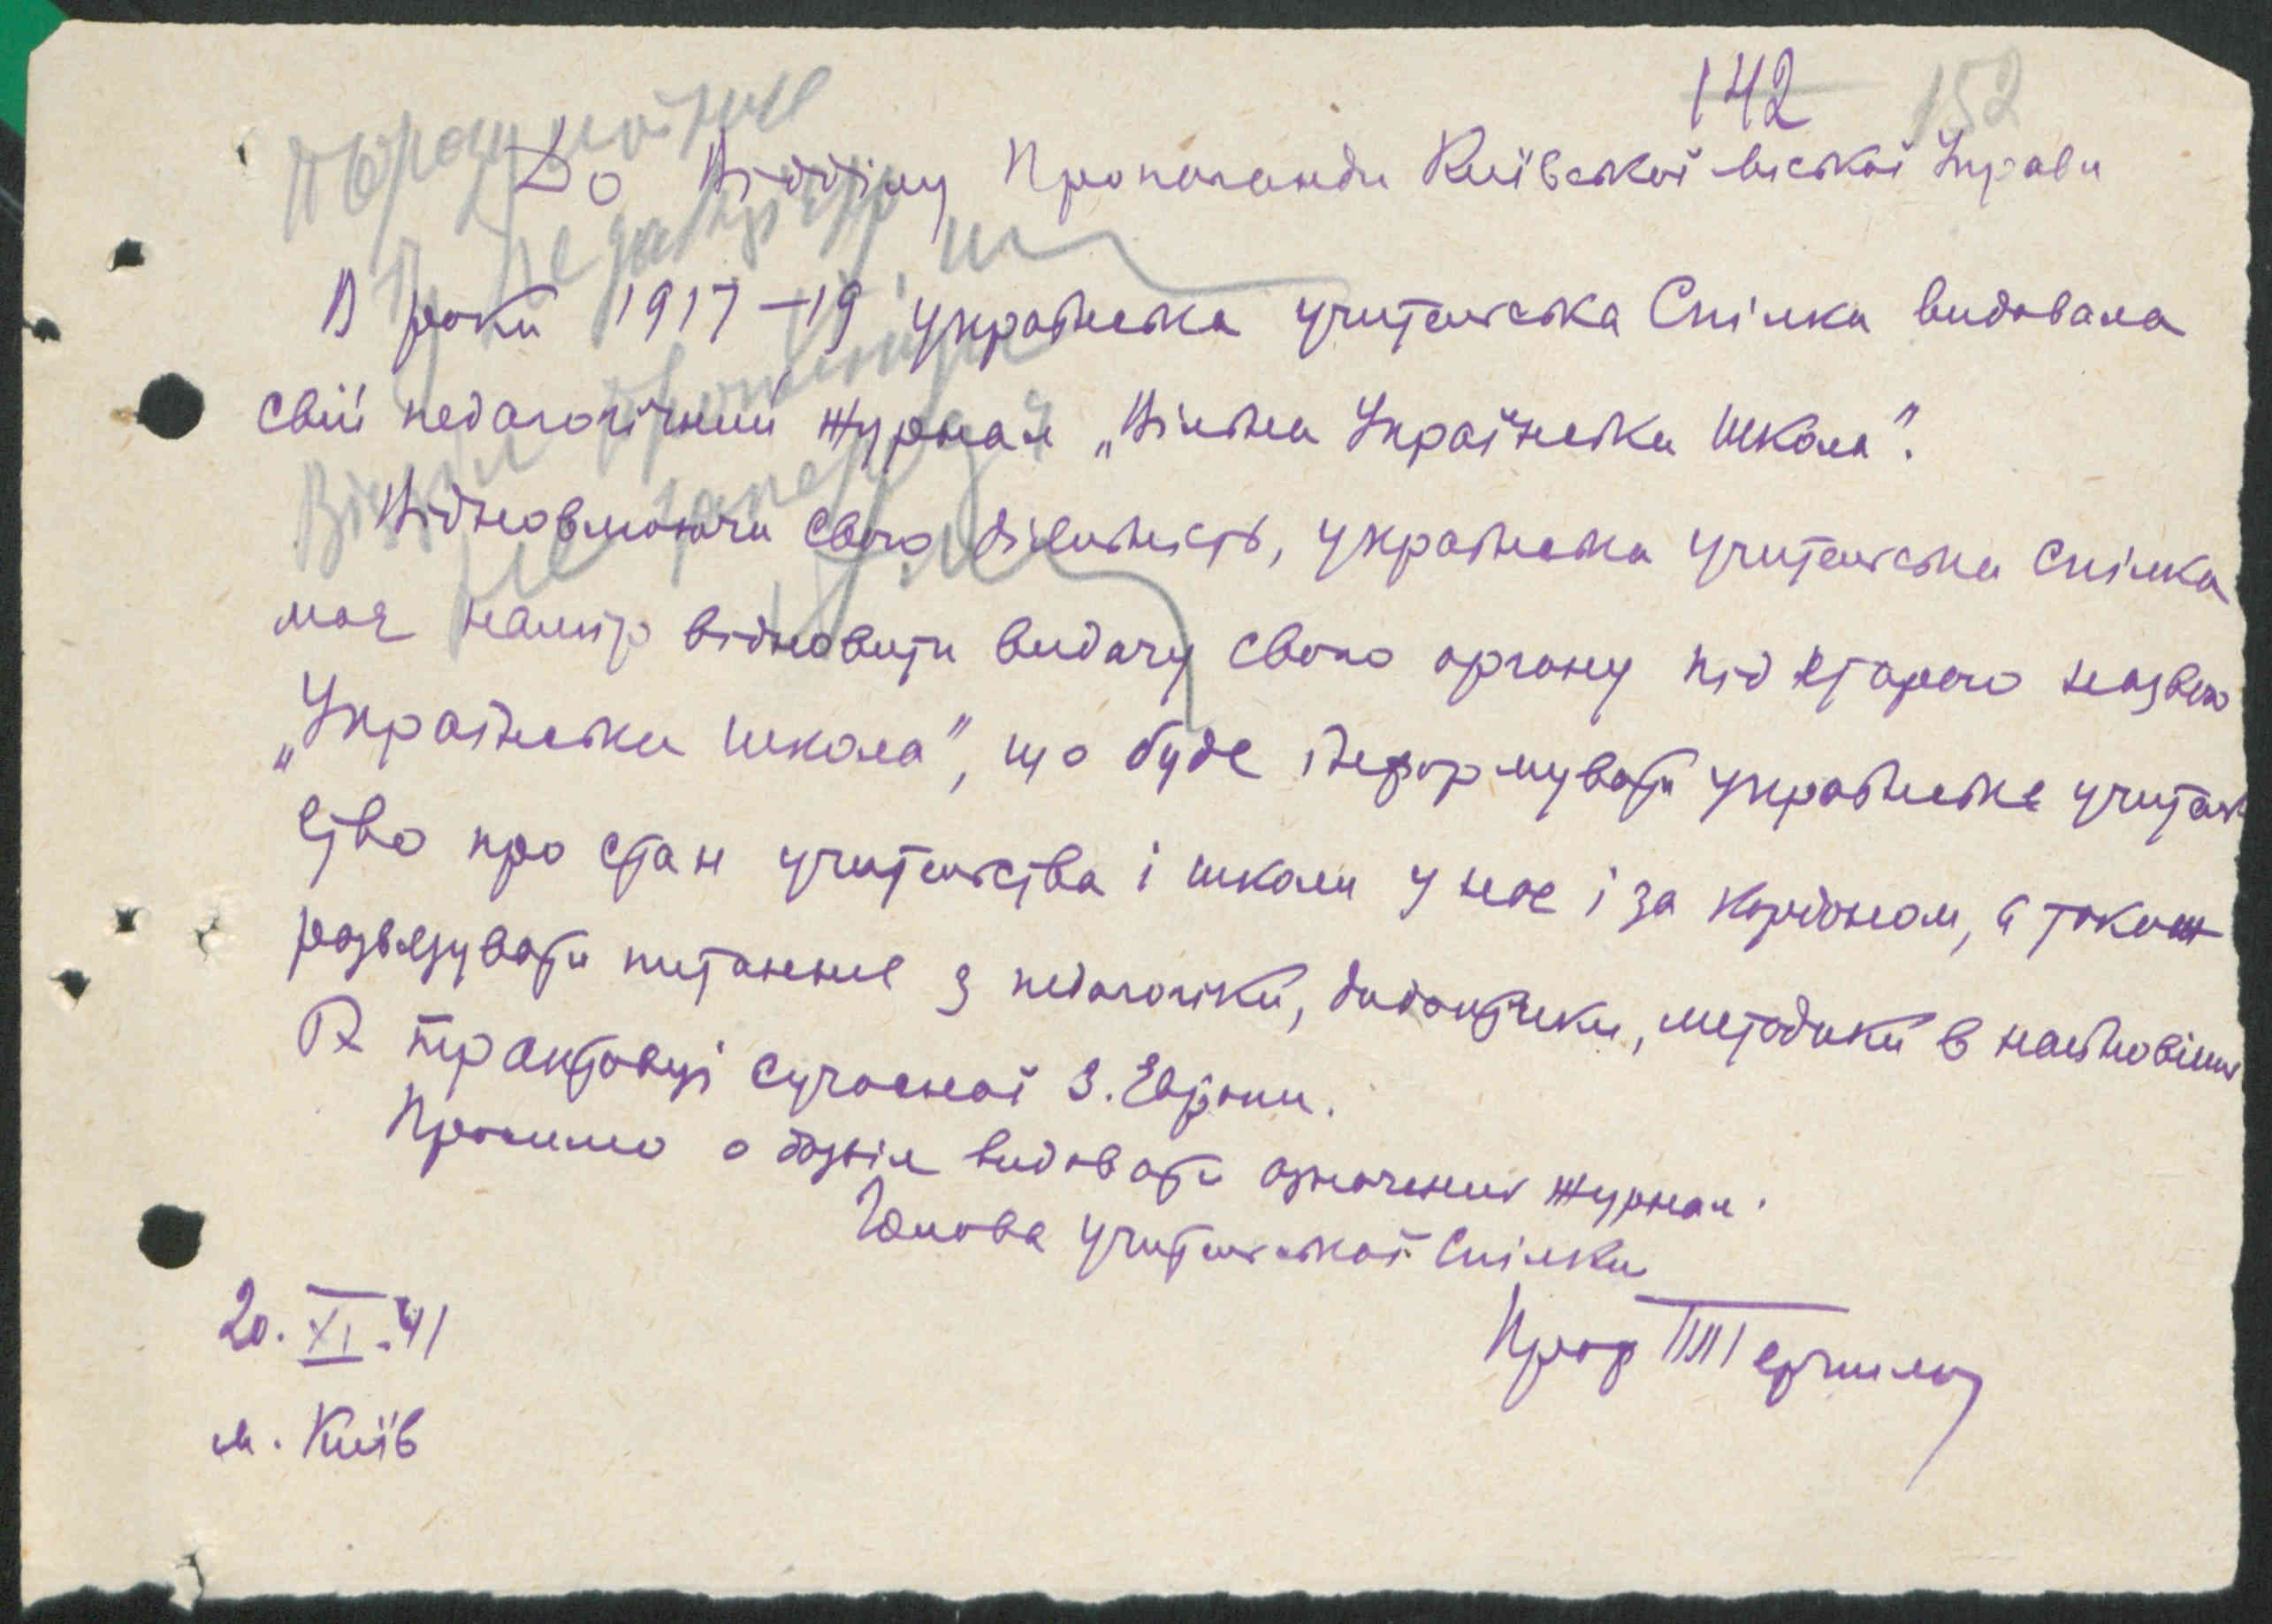 142 152
До Відділу Пропаганди Київської міської Управи
В роки 1917–19 українська учительська Спілка видавала
свій педагогічний журнал „Вільна Українська Школа".
Відновлюючи свою діяльність, українська учительська спілка
має намір відновити видачу свого органу під старою назвою
„Українська школа", що буде інформувати українське учитель
ство про стан учительства і школи у нас і за кордоном, а також
розвязувати питання з педагогіки, дидактики, методики в найновіш
трактовці сучасної З. Европи.
Просимо о дозвіл видавати означений журнал.
Голова учительської Спілки
Проф
20.XI.41
м. Київ